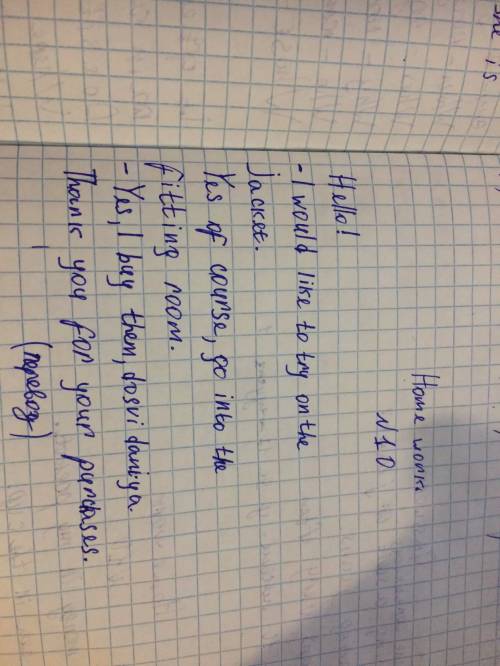 she is
Home work
N10
Hello!
- I would like to try on the
jacket.
Yes of course, go into the
fitting room.
- Yes, I buy them, dosvidaniya.
Thank you for your purchases.
(перевод)